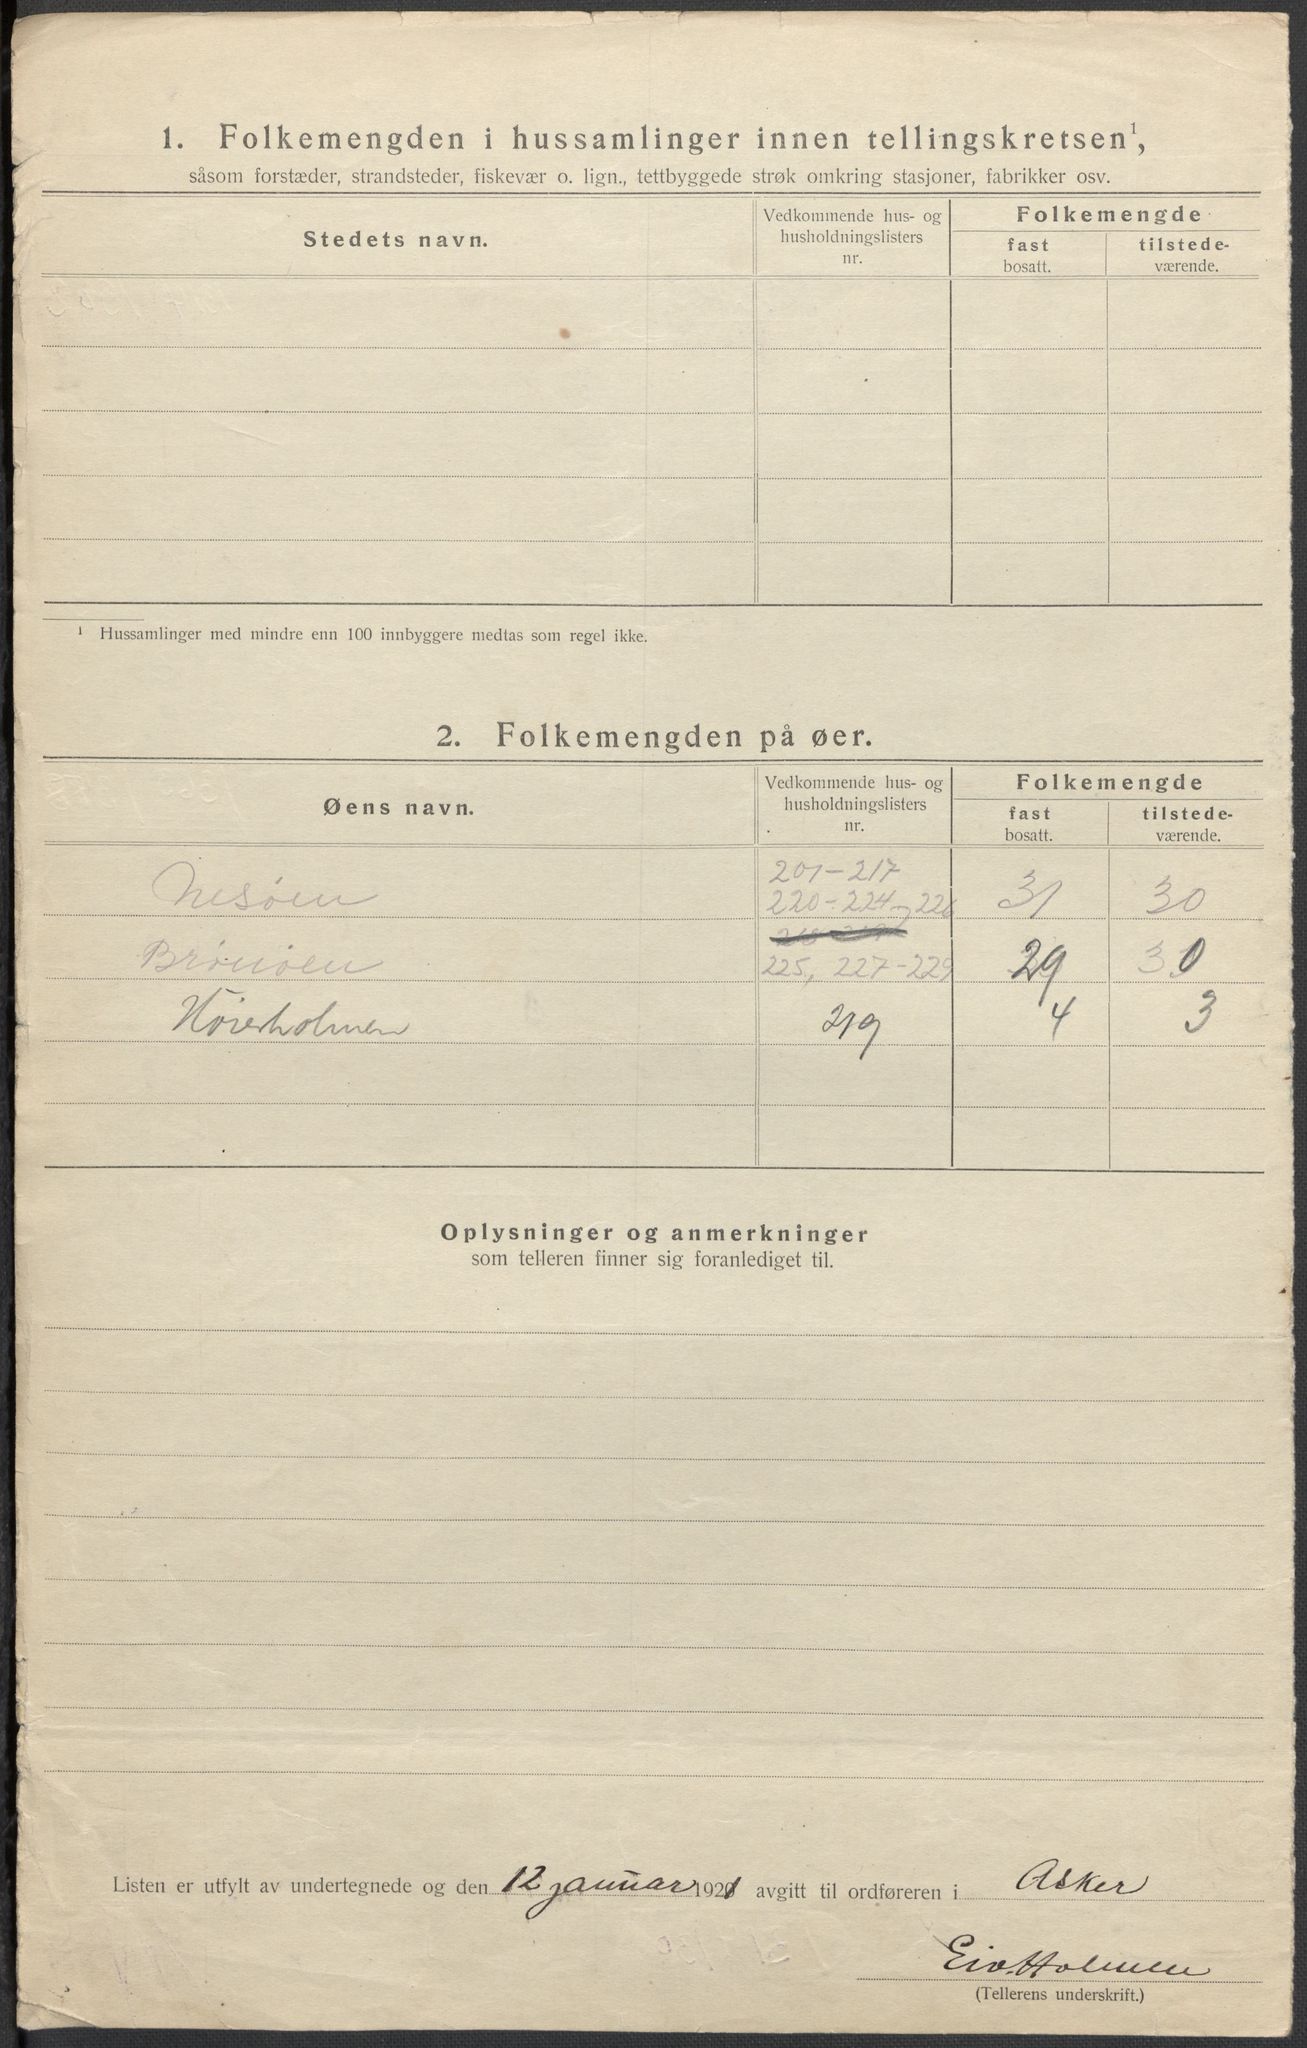 1. Folkemengden i hussamlinger innen tellingskretsen¹,
såsom forstæder, strandsteder, fiskevær o. lign., tettbyggede strøk omkring stasjoner, fabrikker osv.
Stedets navn.
Vedkommende hus- og
husholdningslisters
nr.
Folkemengde
fast
bosatt.
tilstede-
værende.
¹ Hussamlinger med mindre enn 100 innbyggere medtas som regel ikke.
2. Folkemengden på øer.
Øens navn.
Vedkommende hus- og
husholdningslisters
nr.
Folkemengde
fast
bosatt.
tilstede-
værende.
201-217
Nesøen 220-224, 226 31 30
Brønøen 225, 227-229 29 30
Høierholmen 219 4 3
Oplysninger og anmerkninger
som telleren finner sig foranlediget til.
Listen er utfylt av undertegnede og den 12 januar 1921 avgitt til ordføreren i Asker
Eiv. Holmen
(Tellerens underskrift.)